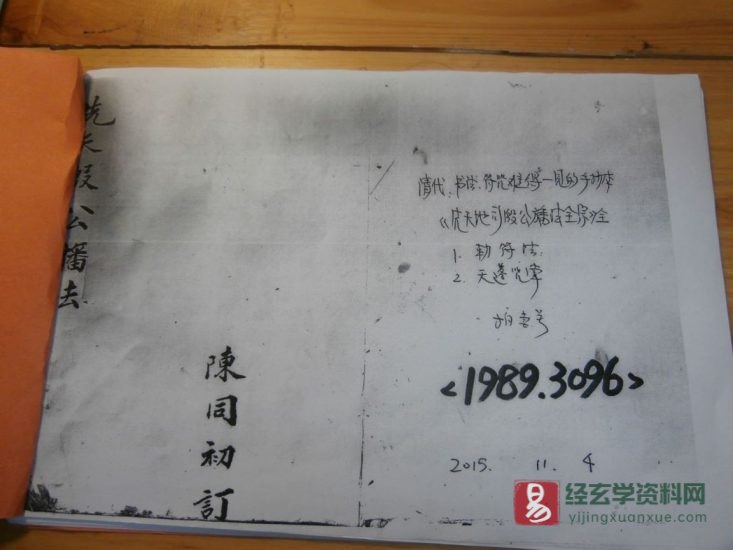 先天殷公播法
陳同初訂
清代、书法、符咒难得一见的手抄本
《先天地司殷公播法全宗》
1. 勅符法
2. 天蓬咒案
<1989.3096>
2015. 11. 4
易 经玄学资料网
yijingxuanxue.com